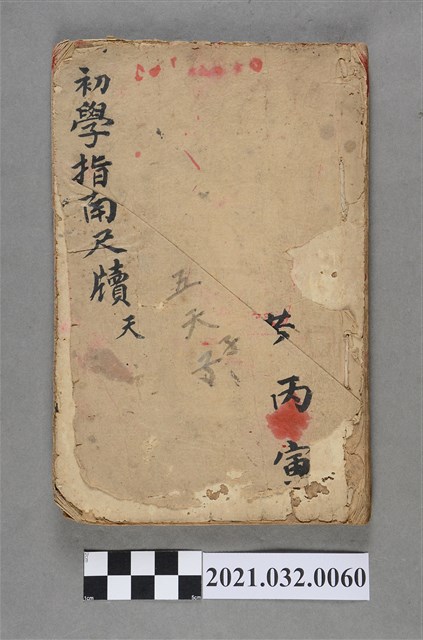 丙寅
五天
初學指南尺牘
天
2021.032.0060
1cm
5cm